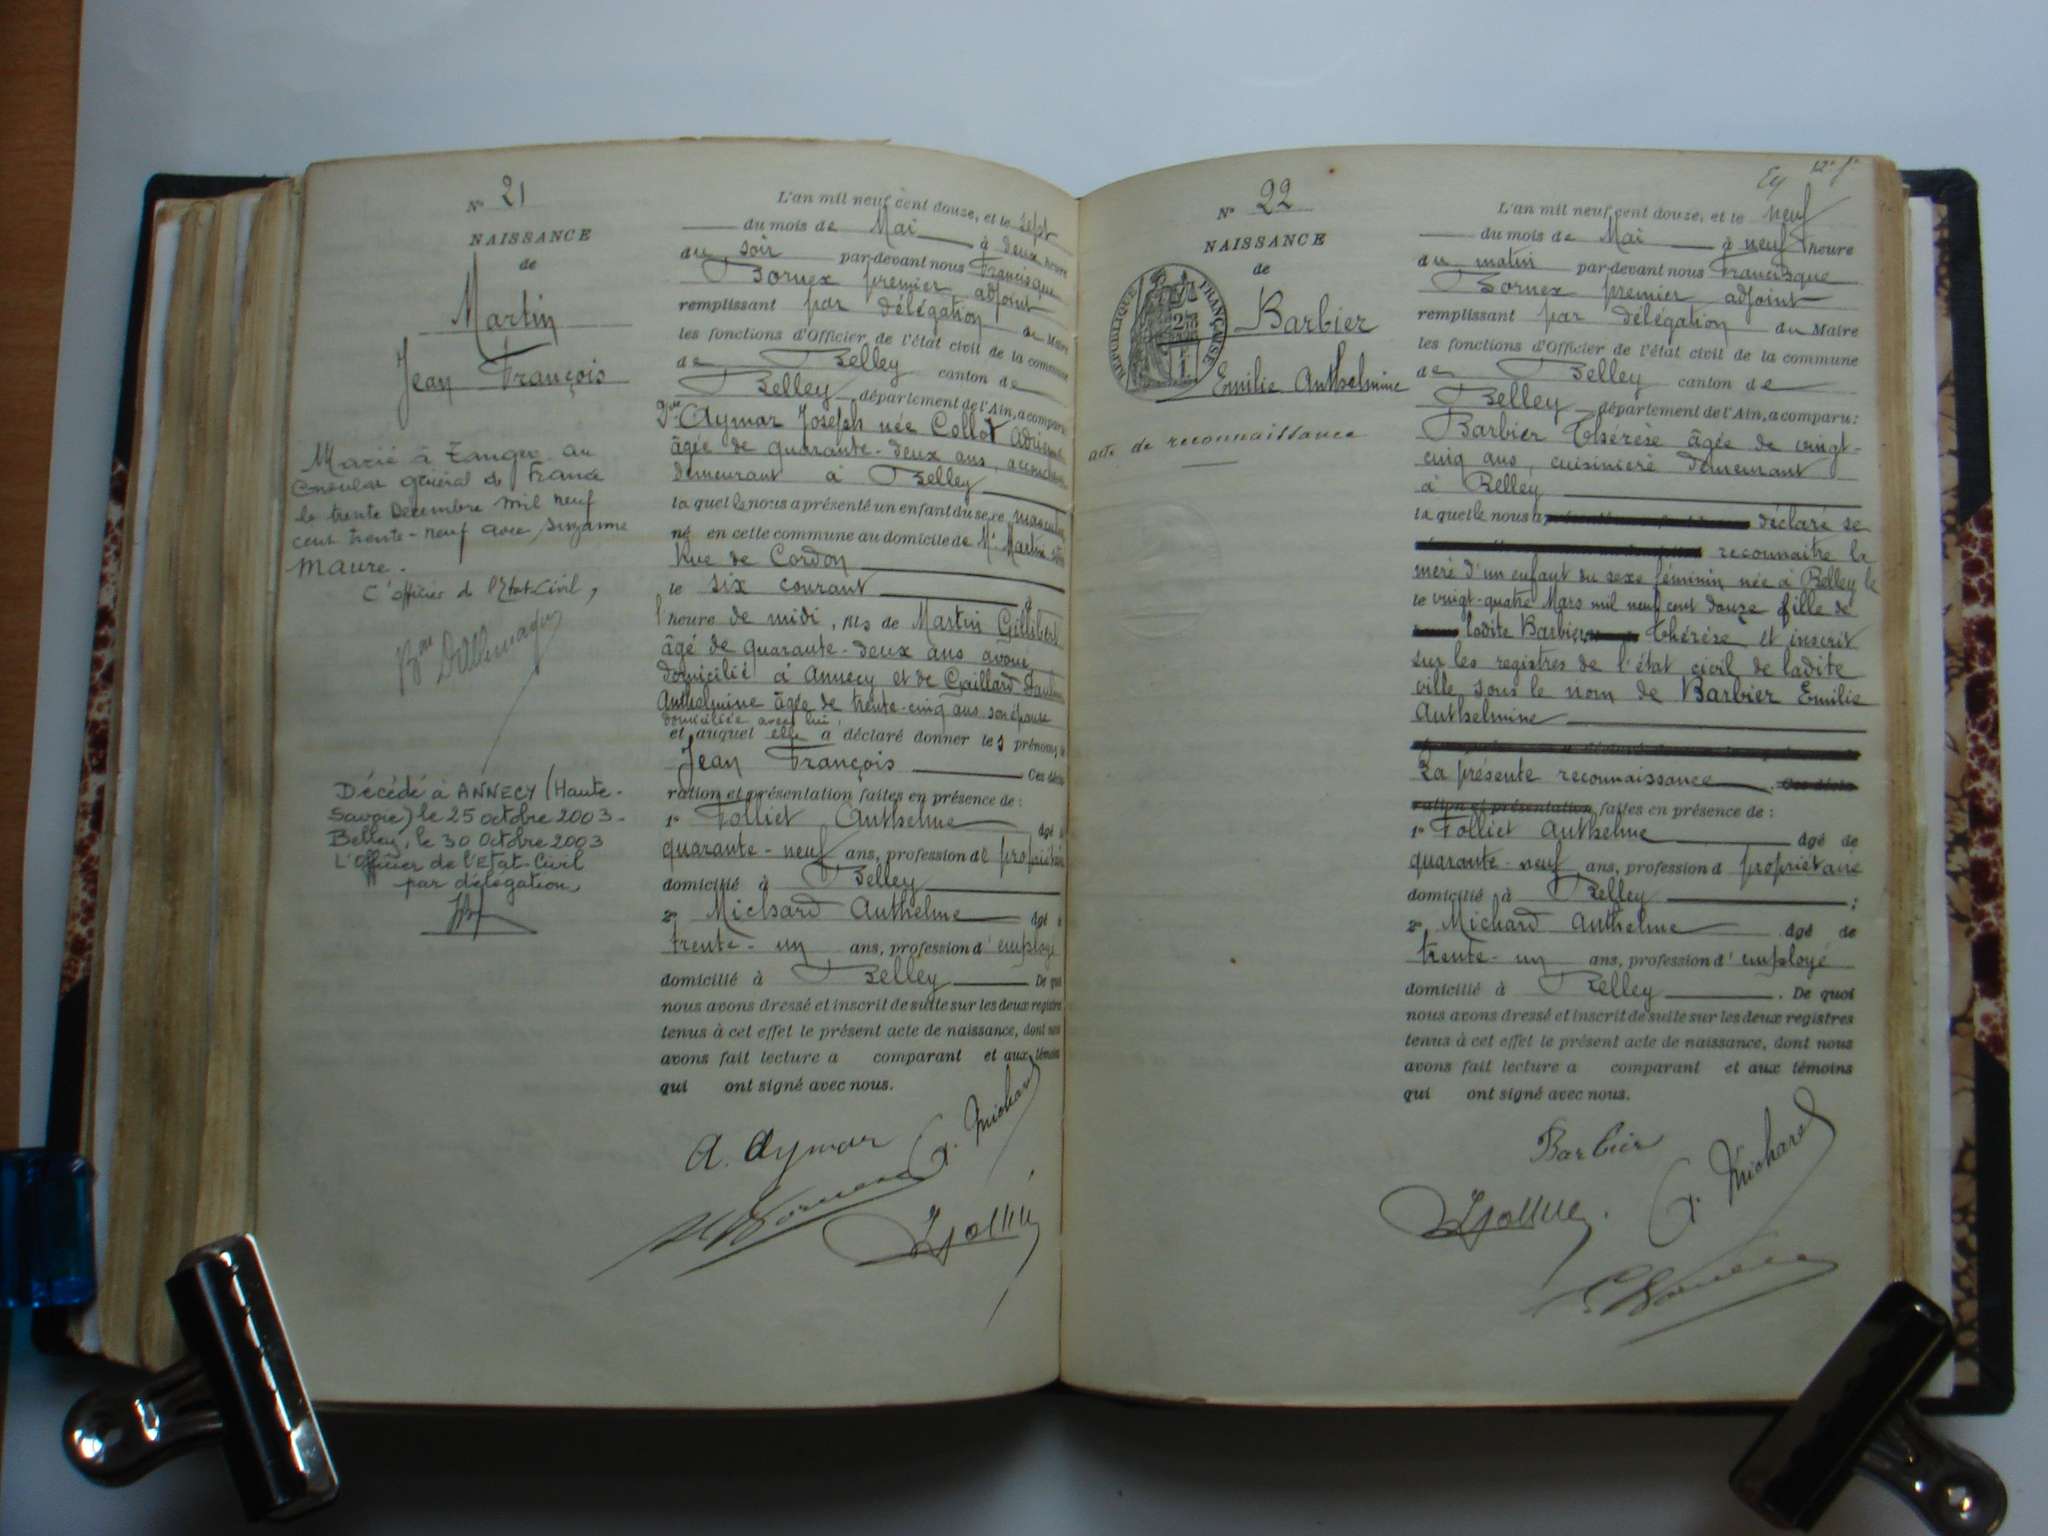 N° 21
NAISSANCE
de
Martin
Jean François
Marié à Tanger au
Consulat général de France
le trente Decembre mil neuf
cent trente-neuf avec Suzanne
Maure.
L'officier de l'Etat-Civil,
Décédé à ANNECY (Haute-
Savoie) le 25 octobre 2003-
Belley, le 30 octobre 2003
L'Officier de l'Etat-Civil
par délégation,
L'an mil neuf cent douze, et le sept
du mois de Mai à deux heure
du soir par-devant nous Francisque
Bornex premier adjoint
remplissant par délégation du Maire
les fonctions d'Officier de l'état civil de la commune
de Belley canton de
Belley, département de l'Ain, a comparu
Aymar Joseph née Collot
âgée de quarante-deux ans,
demeurant à Belley
laquelle nous a présenté un enfant du sexe masculin
né en cette commune au domicile de Mr Martin
Rue de Cordon
le six courant à
l'heure de midi, fils de Martin Gillibert
âgé de quarante-deux ans avoué
domicilié à Annecy et de Gaillard
Anthelmine âgée de trente-cinq ans son épouse
domiciliée avec lui,
et auquel elle a déclaré donner les prénoms
Jean François Ces décla
ration et présentation faites en présence de :
1° Folliet Anthelme âgé
quarante-neuf ans, profession de propriétaire
domicilié à Belley
2° Michard Anthelme âgé
trente-un ans, profession d'employé
domicilié à Belley De quoi
nous avons dressé et inscrit de suite sur les deux registres
tenus à cet effet le présent acte de naissance, dont nous
avons fait lecture a comparant et aux témoins
qui ont signé avec nous.
A. Aymar A. Michard
N° 22
NAISSANCE
de
RÉPUBLIQUE FRANÇAISE
Barbier
Emilie Anthelmine
acte de reconnaissance
L'an mil neuf cent douze, et le neuf
du mois de Mai à neuf heure
du matin par-devant nous Francisque
Bornex premier adjoint
remplissant par délégation du Maire
les fonctions d'Officier de l'état civil de la commune
de Belley canton de
Belley, département de l'Ain, a comparu :
Barbier Thérèse âgée de vingt-
cinq ans, cuisinière demeurant
à Belley
laquelle nous a déclaré se
reconnaitre la
mère d'un enfant du sexe féminin née à Belley le
le vingt-quatre Mars mil neuf cent douze fille de
ladite Barbier Thérèse et inscrit
sur les registres de l'état civil de ladite
ville sous le nom de Barbier Emilie
Anthelmine
La présente reconnaissance Ces décla
ration et présentation faites en présence de :
1° Folliet Anthelme âgé de
quarante-neuf ans, profession d propriétaire
domicilié à Belley ;
2° Michard Anthelme âgé de
trente-un ans, profession d'employé
domicilié à Belley . De quoi
nous avons dressé et inscrit de suite sur les deux registres
tenus à cet effet le présent acte de naissance, dont nous
avons fait lecture a comparant et aux témoins
qui ont signé avec nous.
Barbier
A. Michard